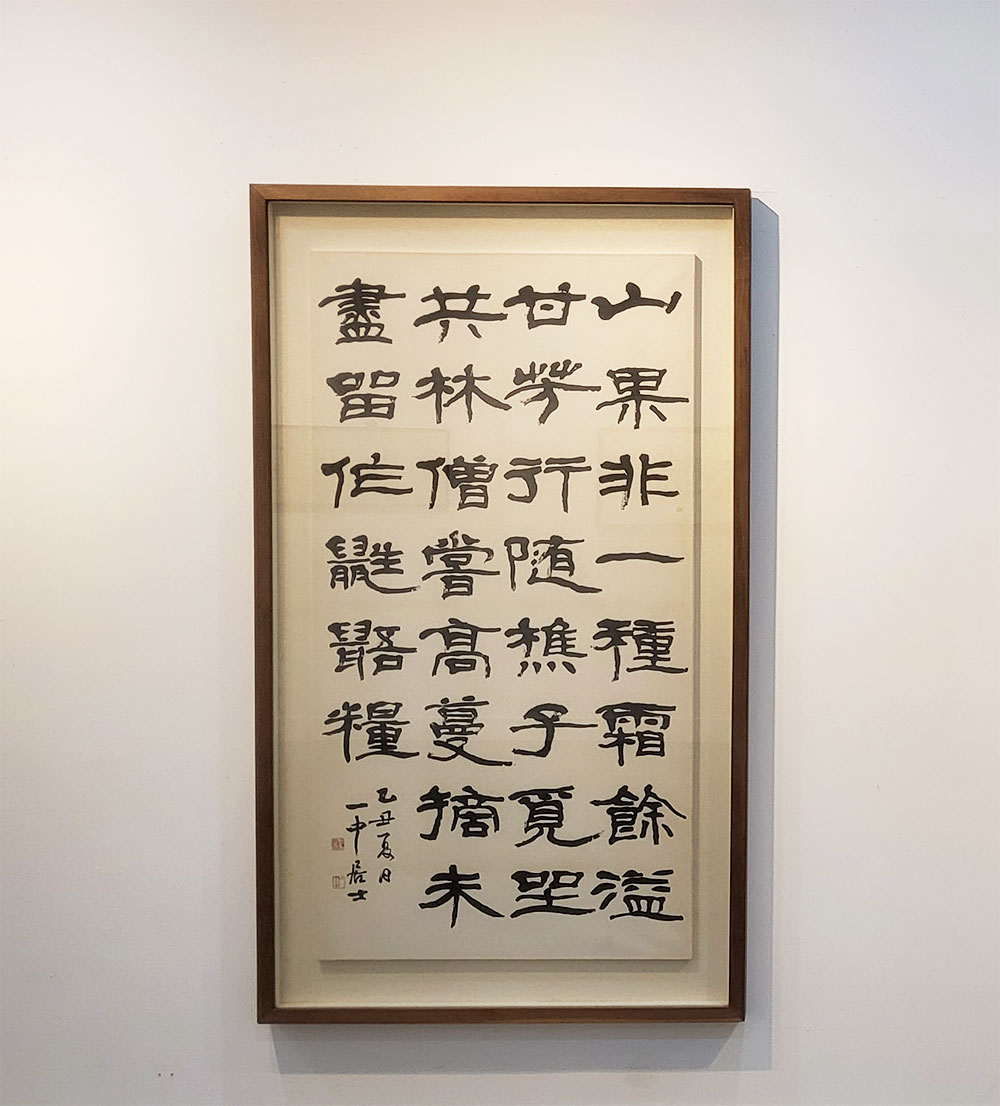 山果非一種霜餘溢
甘芳行随樵子覓坐
共林僧嘗高蔓摘未
盡留作鼪鼯糧
乙丑夏日
一中居士